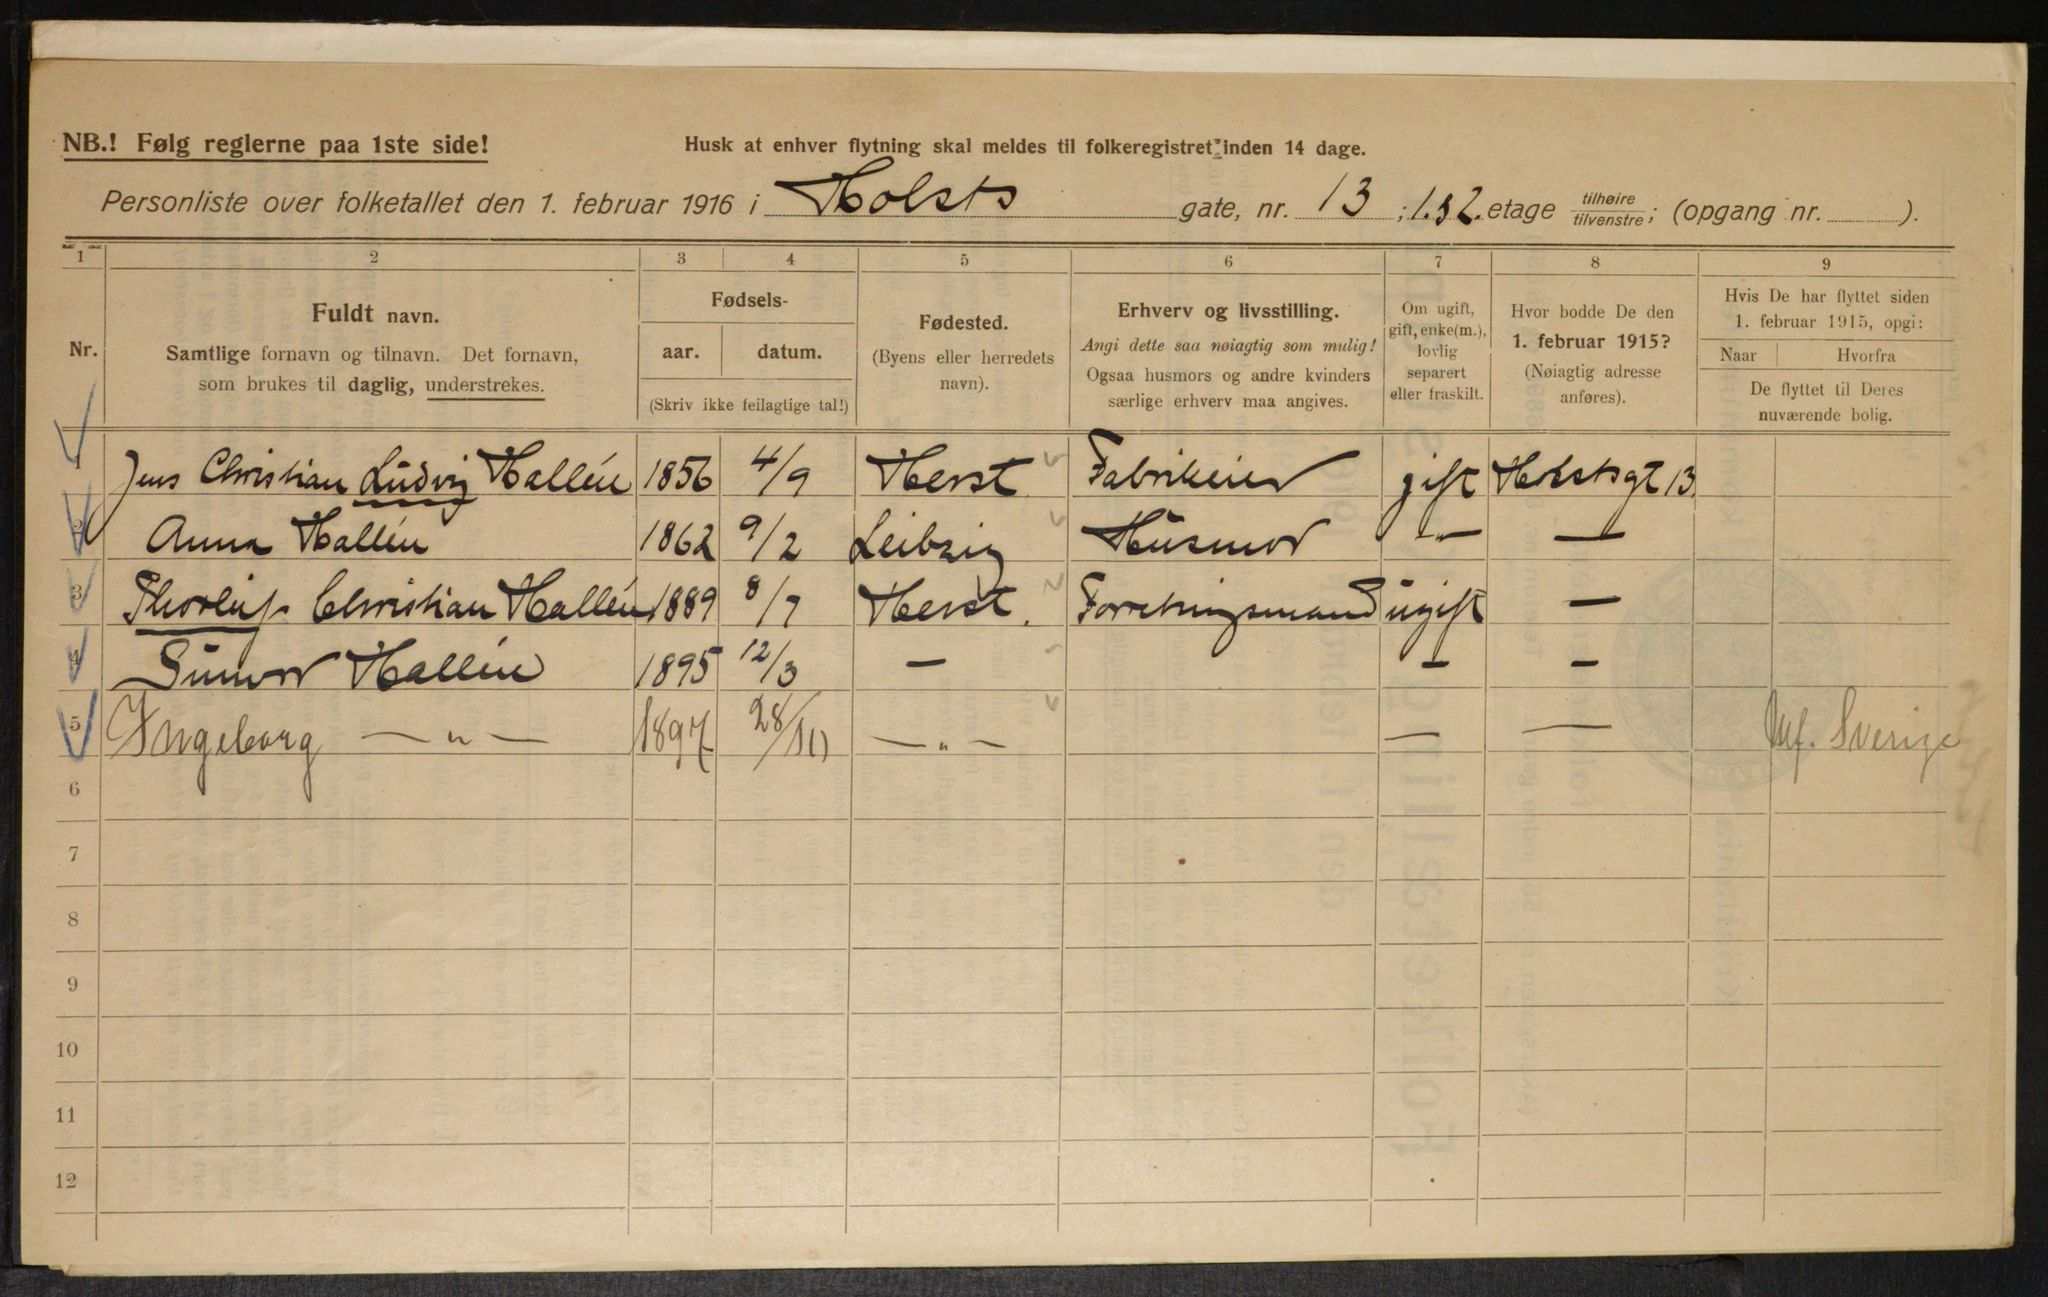 NB.! Følg reglerne paa 1ste side! Husk at enhver flytning skal meldes til folkeregistret inden 14 dage.
Personliste over folketallet den 1. februar 1916 i Holsts gate, nr. 13 ; 1. & 2. etage tilhøire/tilvenstre; (opgang nr. ).
1 2 3 4 5 6 7 8 9
Nr.
Fuldt navn.
Samtlige fornavn og tilnavn. Det fornavn,
som brukes til daglig, understrekes.
Fødsels-
aar. datum.
(Skriv ikke feilagtige tal!)
Fødested.
(Byens eller herredets
navn).
Erhverv og livsstilling.
Angi dette saa nøiagtig som mulig!
Ogsaa husmors og andre kvinders
særlige erhverv maa angives.
Om ugift,
gift, enke(m.),
lovlig
separert
eller fraskilt.
Hvor bodde De den
1. februar 1915?
(Nøiagtig adresse
anføres).
Hvis De har flyttet siden
1. februar 1915, opgi:
Naar Hvorfra
De flyttet til Deres
nuværende bolig.
1 Jens Christian Ludvig Hallén 1856 4/9 Herst Fabrikeier gift Holstsgt 13
2 Anna Hallén 1862 9/2 Leibzig Husmor -"- —
3 Thorleif Christian Hallén 1889 8/7 Herst. Forretningsmand ugift —
4 Gunvor Hallén 1895 12/3 — — —
5 Ingeborg —"— 1897 —"— — — Sverige
6
7
8
9
10
11
12